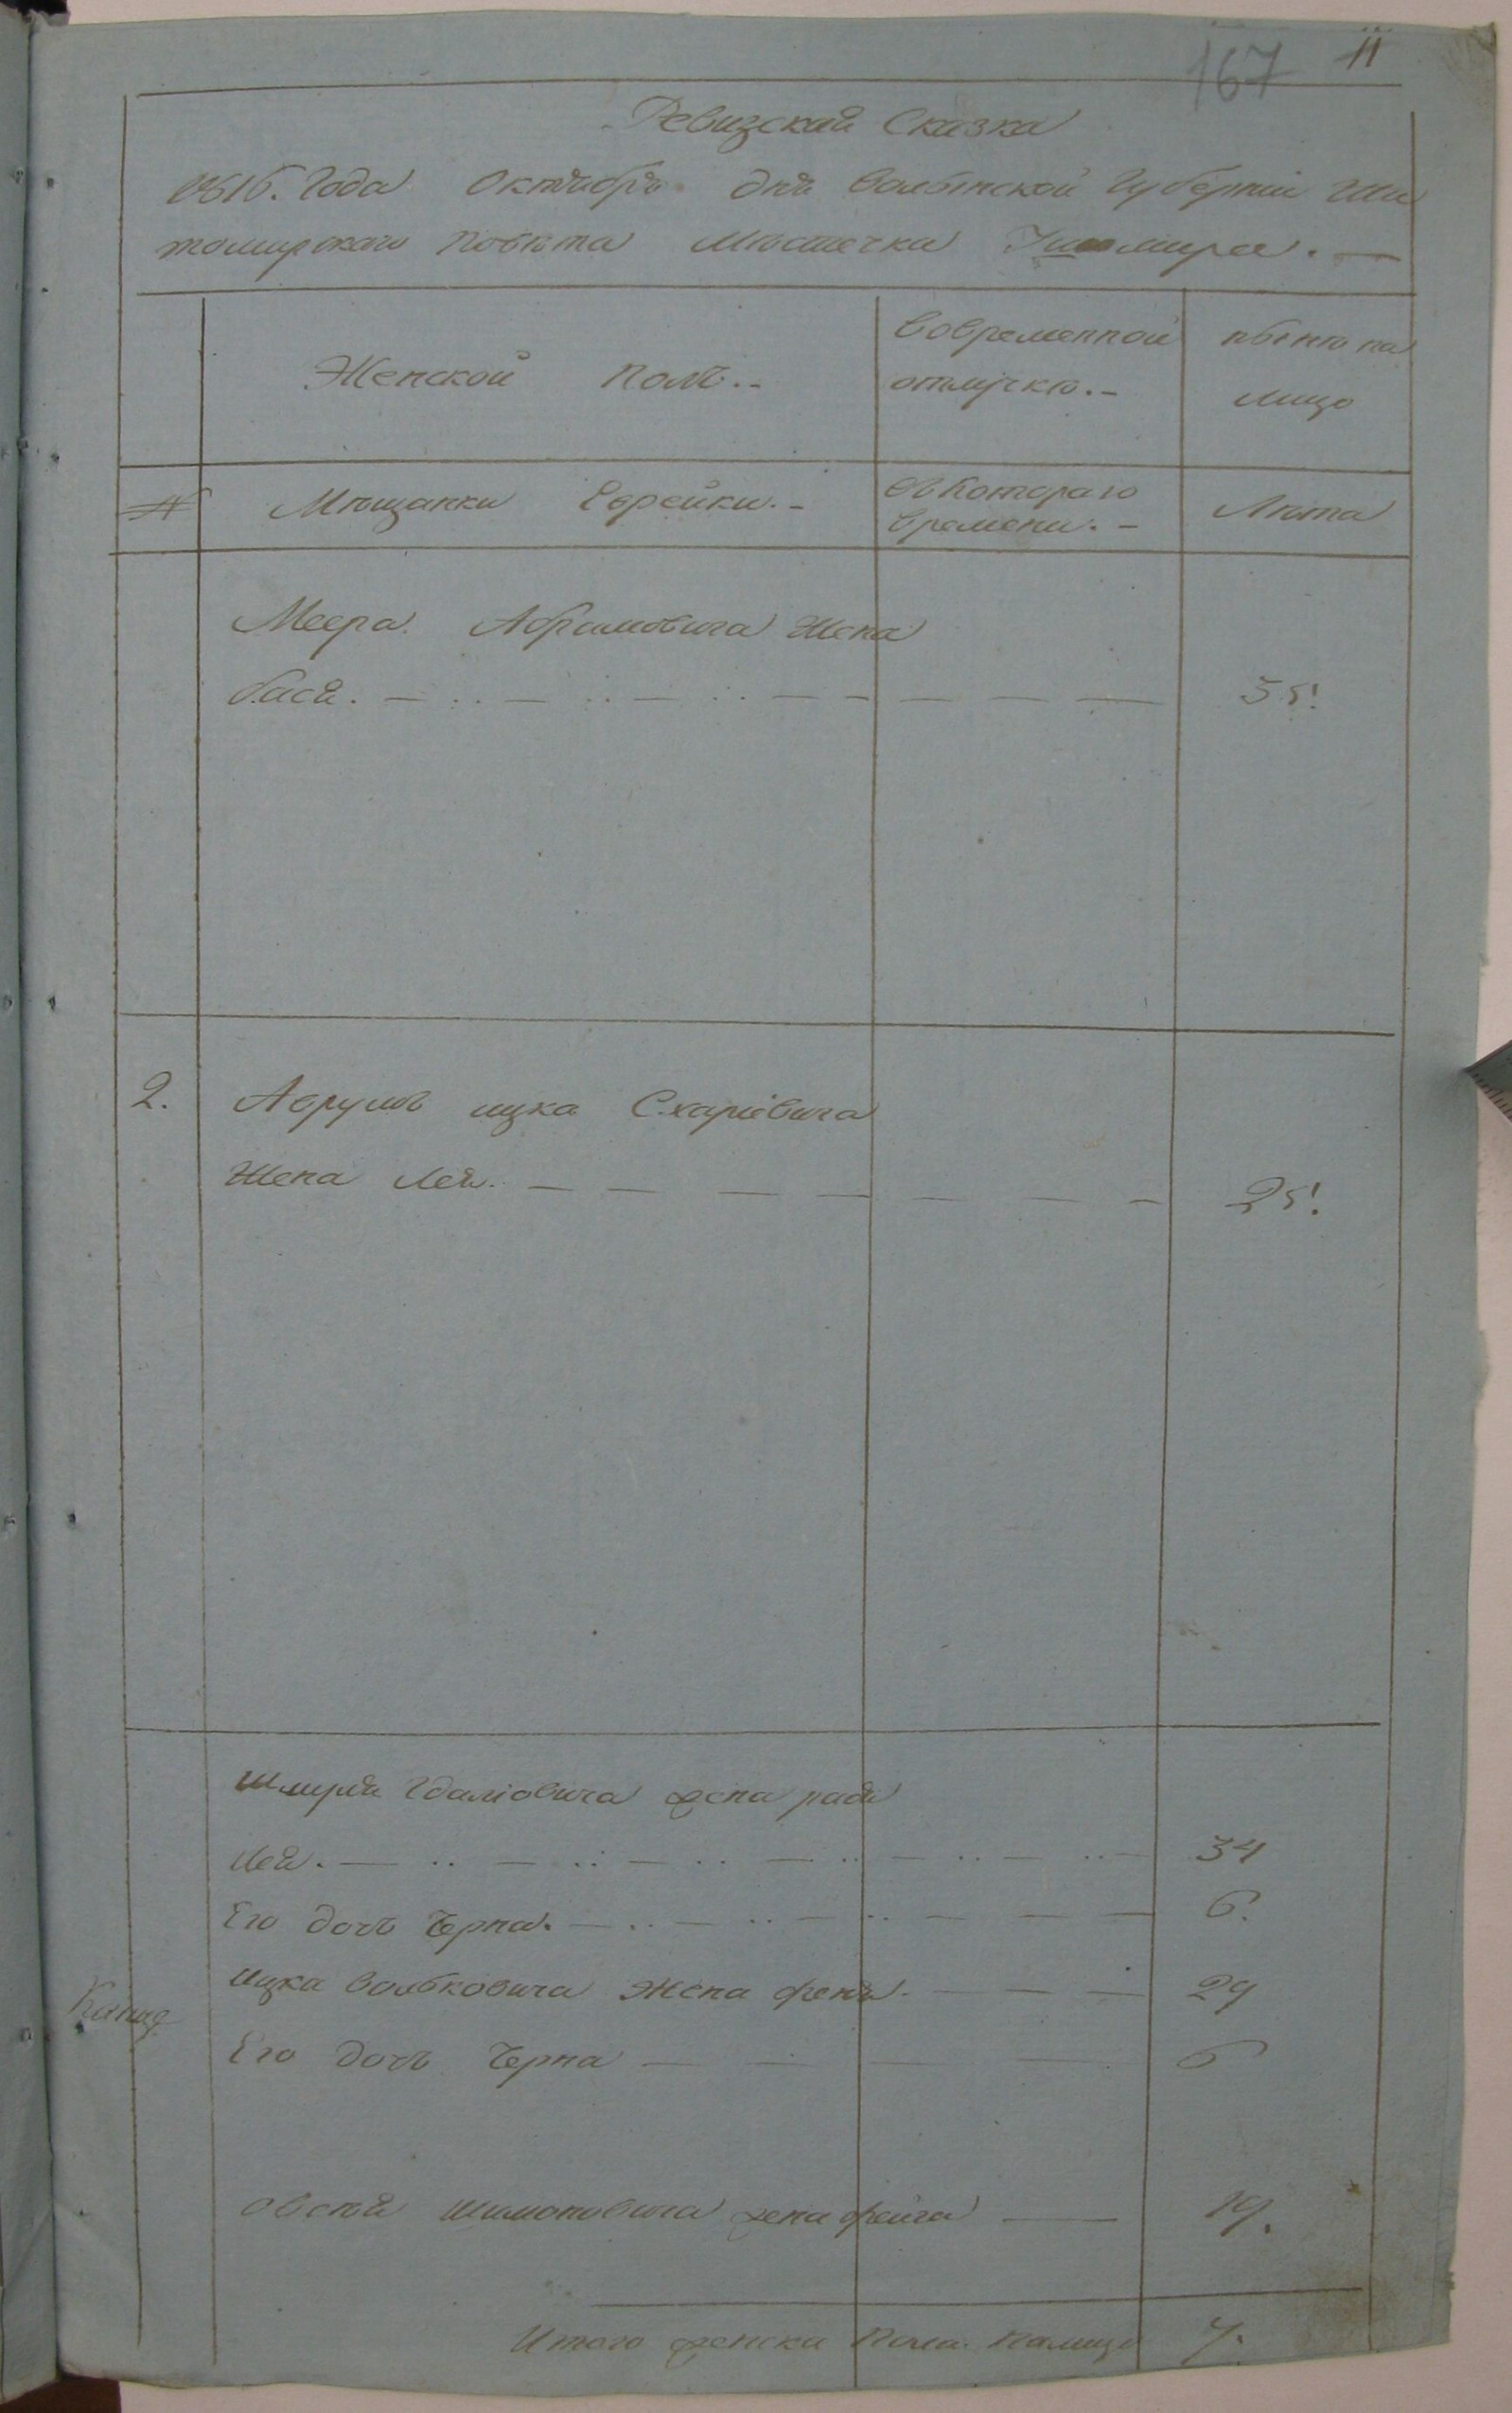 167 11
Ревизская Сказка
1816. Года Октября дня Волынской Губернии Жи
томирскаго Повѣта Мѣстечка Ушомира. —
Женской полъ.-
Вовременной
отлучкѣ.-
нынѣ на
лицо
№
Мѣщанки Еврейки.-
Съ Котораго
времени.-
Лѣта
Меера Абрамовича Жена
бася. — 35!
2. Аврумъ ицка Схаріевича
Жена Лея. — 25!
Шмуля Гдаліовича жена рася
Лея. — 34
Его дочъ Черна. — 6.
Ицка Волковича Жена феня. — 29
Его дочъ Черна — 6
Овсея Шимоновича жена фейга — 19.
Итого женска Пола. Налицо 7.